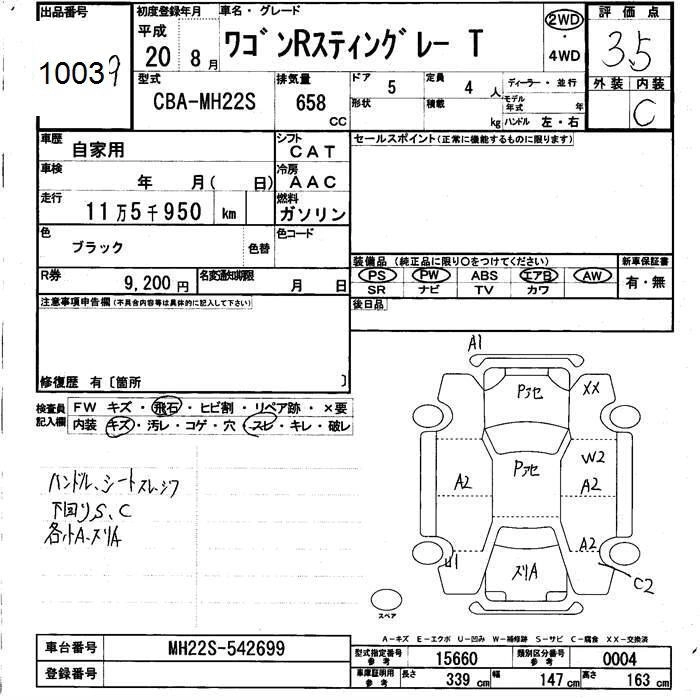 出品番号 初度登録年月 車名・グレード 2WD 評価点
10039 平成 20 8月 ワゴンRスティングレー T ・ 4WD 3.5
型式 排気量 ドア 5 定員 4 人 ディーラー・並行 外装 内装
CBA-MH22S 658 CC 形状 積載 kg モデル年式 年 ハンドル 左・右 C
車歴 自家用 シフト CAT セールスポイント(正常に機能するものに限ります)
車検 年 月( 日) 冷房 AAC
走行 11万5千950 km 燃料 ガソリン
色 ブラック 色替 色コード
装備品 (純正品に限り○をつけてください) 新車保証書
R券 9,200円 名変通知期限 月 日 PS PW ABS エアB AW 有・無
SR ナビ TV カワ
注意事項申告欄(不具合内容等は具体的に記入して下さい) 後日品
修復歴 有〔箇所 〕
検査員 FW キズ・飛石・ヒビ割・リペア跡・×要
記入欄 内装 キズ・汚レ・コゲ・穴・スレ・キレ・破レ
ハンドル、シートスレ、シワ
下回りS、C
各小A、スリA
A1
Pアセ XX
W2
A2 Pアセ A2
A2
U1 スリA C2
スペア
A-キズ E-エクボ U-凹み W-補修跡 S-サビ C-腐食 XX-交換済
車台番号 MH22S-542699 型式指定番号 参考 15660 類別区分番号 参考 0004
登録番号 車庫証明用 参考 長さ 339 cm 幅 147 cm 高さ 163 cm